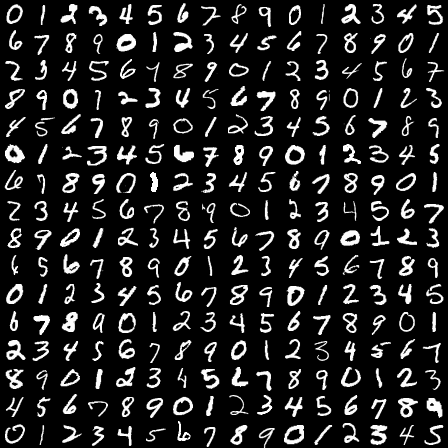 0 1 2 3 4 5 6 7 8 9 0 1 2 3 4 5
6 7 8 9 0 1 2 3 4 5 6 7 8 9 0 1
2 3 4 5 6 7 8 9 0 1 2 3 4 5 6 7
8 9 0 1 2 3 4 5 6 7 8 9 0 1 2 3
4 5 6 7 8 9 0 1 2 3 4 5 6 7 8 9
0 1 2 3 4 5 6 7 8 9 0 1 2 3 4 5
6 7 8 9 0 1 2 3 4 5 6 7 8 9 0 1
2 3 4 5 6 7 8 9 0 1 2 3 4 5 6 7
8 9 0 1 2 3 4 5 6 7 8 9 0 1 2 3
6 5 6 7 8 9 0 1 2 3 4 5 6 7 8 9
0 1 2 3 4 5 6 7 8 9 0 1 2 3 4 5
6 7 8 9 0 1 2 3 4 5 6 7 8 9 0 1
2 3 4 5 6 7 8 9 0 1 2 3 4 5 6 7
8 9 0 1 2 3 4 5 6 7 8 9 0 1 2 3
4 5 6 7 8 9 0 1 2 3 4 5 6 7 8 9
0 1 2 3 4 5 6 7 8 9 0 1 2 3 4 5